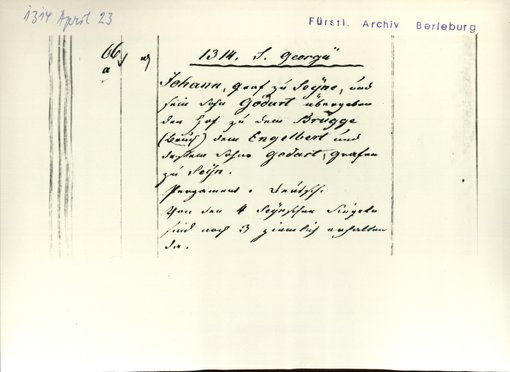 1314 April 23
Fürstl. Archiv Berleburg
66
a
1314. S. Georgii
Johann, Graf zu Seÿne, und
sein Sohn Godart übergeben
den Hof zu dem Brügge
(Bruch) dem Engelbert und
dessen Sohne Godart, Grafen
zu Seÿn.
Pergament. Deutsch.
Von den 4 Seÿnschen Siegeln
sind noch 3 ziemlich erhalten
da.